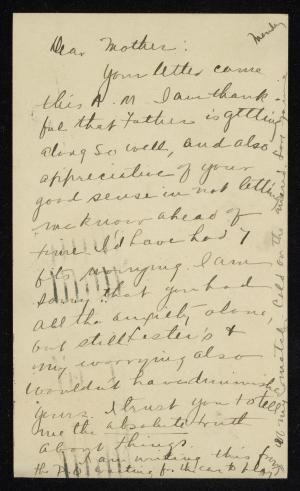 Monday
Dear Mother:
Your letter came
this A.M. I am thank-
ful that Father is getting
along so well, and also
appreciative of your
good sense in not letting
me know ahead of
time. I'd have had 7
fits worrying. I am
sorry that you had
all the anxiety alone,
but still Lester's &
my worrying also
wouldn't have diminished
yours. I trust you to tell
me the absolute truth
about things.
I am writing this from
the P.O. waiting for the car to